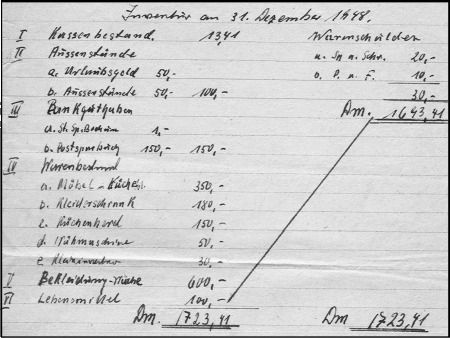 Inventur am 31. Dezember 1948.
I Kassenbestand. 13,41 Warenschulden
II Aussenstände a. Sp. u. Schr. 20,-
a. Urlaubsgeld 50,- b. P. u. F. 10,-
b. Aussenstände 50,- 100,- 30,-
III Bankguthaben Dm. 1693,41
a. St. Sp. Bochum 1,-
b. Postsparbuch 150,- 150,-
IV Warenbestand
a. Möbel - Küchen 350,-
b. Kleiderschrank 180,-
c. Küchenherd 150,-
d. Nähmaschine 50,-
e 30,-
V Bekleidung-Wäsche 600,-
VI Lebensmittel 100,-
Dm. 1723,41 Dm 1723,41